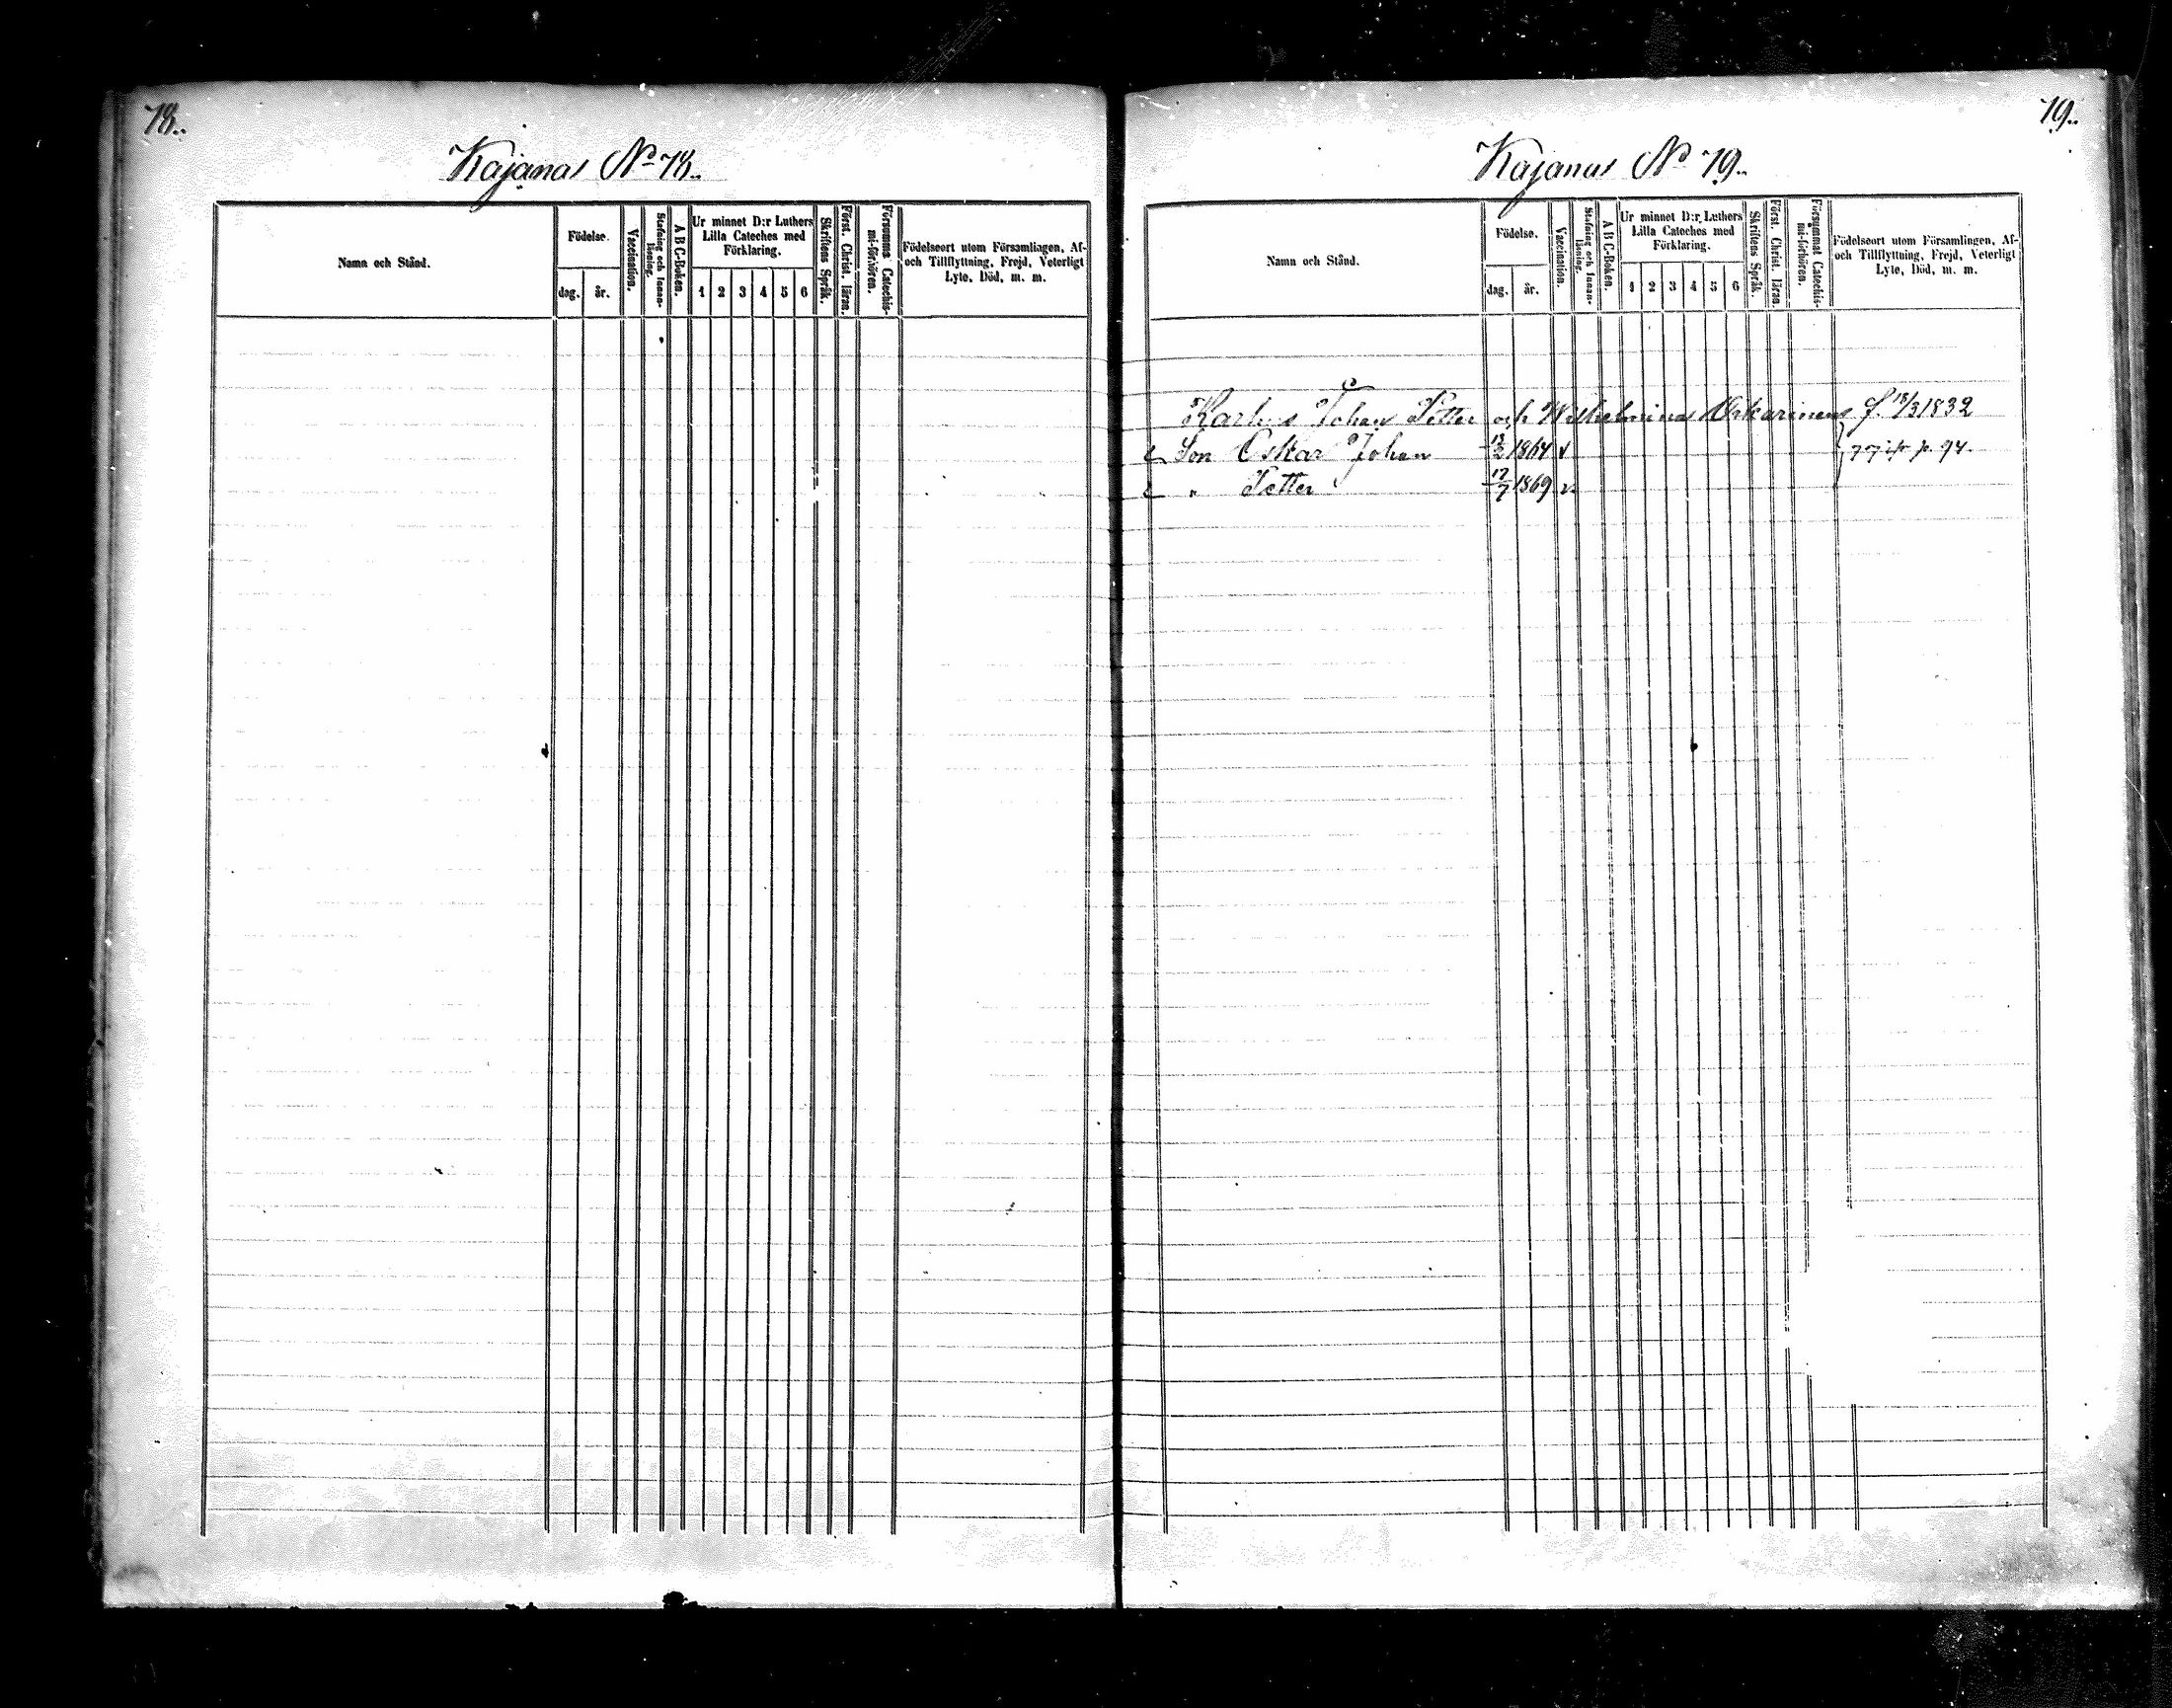 78.
Kajana No 78.
Namn och Stånd.
Födelse.
dag.
år.
Vaccination.
Stafning och Innan-
läsning.
A B C-Boken.
Ur minnet D:r Luthers
Lilla Cateches med
Förklaring.
1 2 3 4 5 6
Skriftens Språk.
Först. Christ. läran.
Försummat Catechis-
mi-förhören.
Födelseort utom Församlingen, Af-
och Tillflyttning, Frejd, Veterligt
Lyte, Död, m. m.
79.
Kajana No 79.
Namn och Stånd.
Födelse.
dag.
år.
Vaccination.
Stafning och Innan-
läsning.
A B C-Boken.
Ur minnet D:r Luthers
Lilla Cateches med
Förklaring.
1 2 3 4 5 6
Skriftens Språk.
Först. Christ. läran.
Försummat Catechis-
mi-förhören.
Födelseort utom Församlingen, Af-
och Tillflyttning, Frejd, Veterligt
Lyte, Död, m. m.
Johan Petter och Wilhelmina f. 1832
Son Oskar Johan 1864 p. 94.
" Petter 17/7 1869